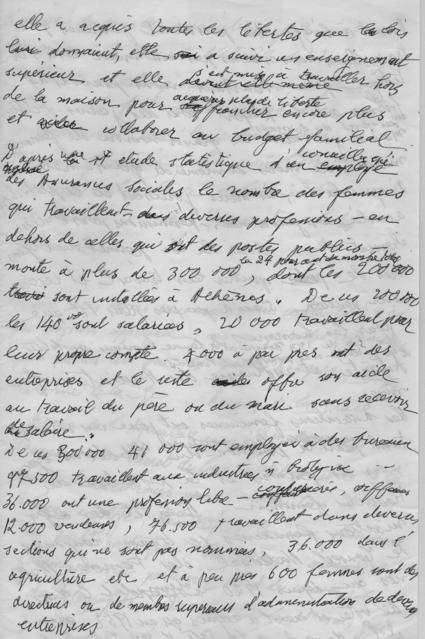 elle a acquis toutes les libertés que les lois
leur donnaient, elle a suivi un enseignement
supérieur et elle s'est mise à travailler hors
de la maison pour acquérir plus de liberté encore plus
et collaborer au budget familial
D'après une étude statistique d'un conseiller
des Assurances sociales le nombre des femmes
qui travaillent dans diverses professions – en
dehors de celles qui ont des postes publics –
monte à plus de 300 000, dont les 200 000
sont installées à Athènes. De ces 200 000
les 140 000 sont salariées, 20 000 travaillent pour
leur propre compte. 4000 à peu près ont des
entreprises et le reste offre son aide
au travail du père ou du mari sans recevoir
de salaire.
De ces 300000 41 000 sont employées à des bureaux
97.500 travaillent aux industries
36.000 ont une profession libre –
12.000 vendeuses, 76.500 travaillent dans diverses
sections qui ne sont pas nommées, 36.000 dans l'
agriculture etc et à peu près 600 femmes sont des
directrices ou de membres supérieurs d'administration de diverses
entreprises